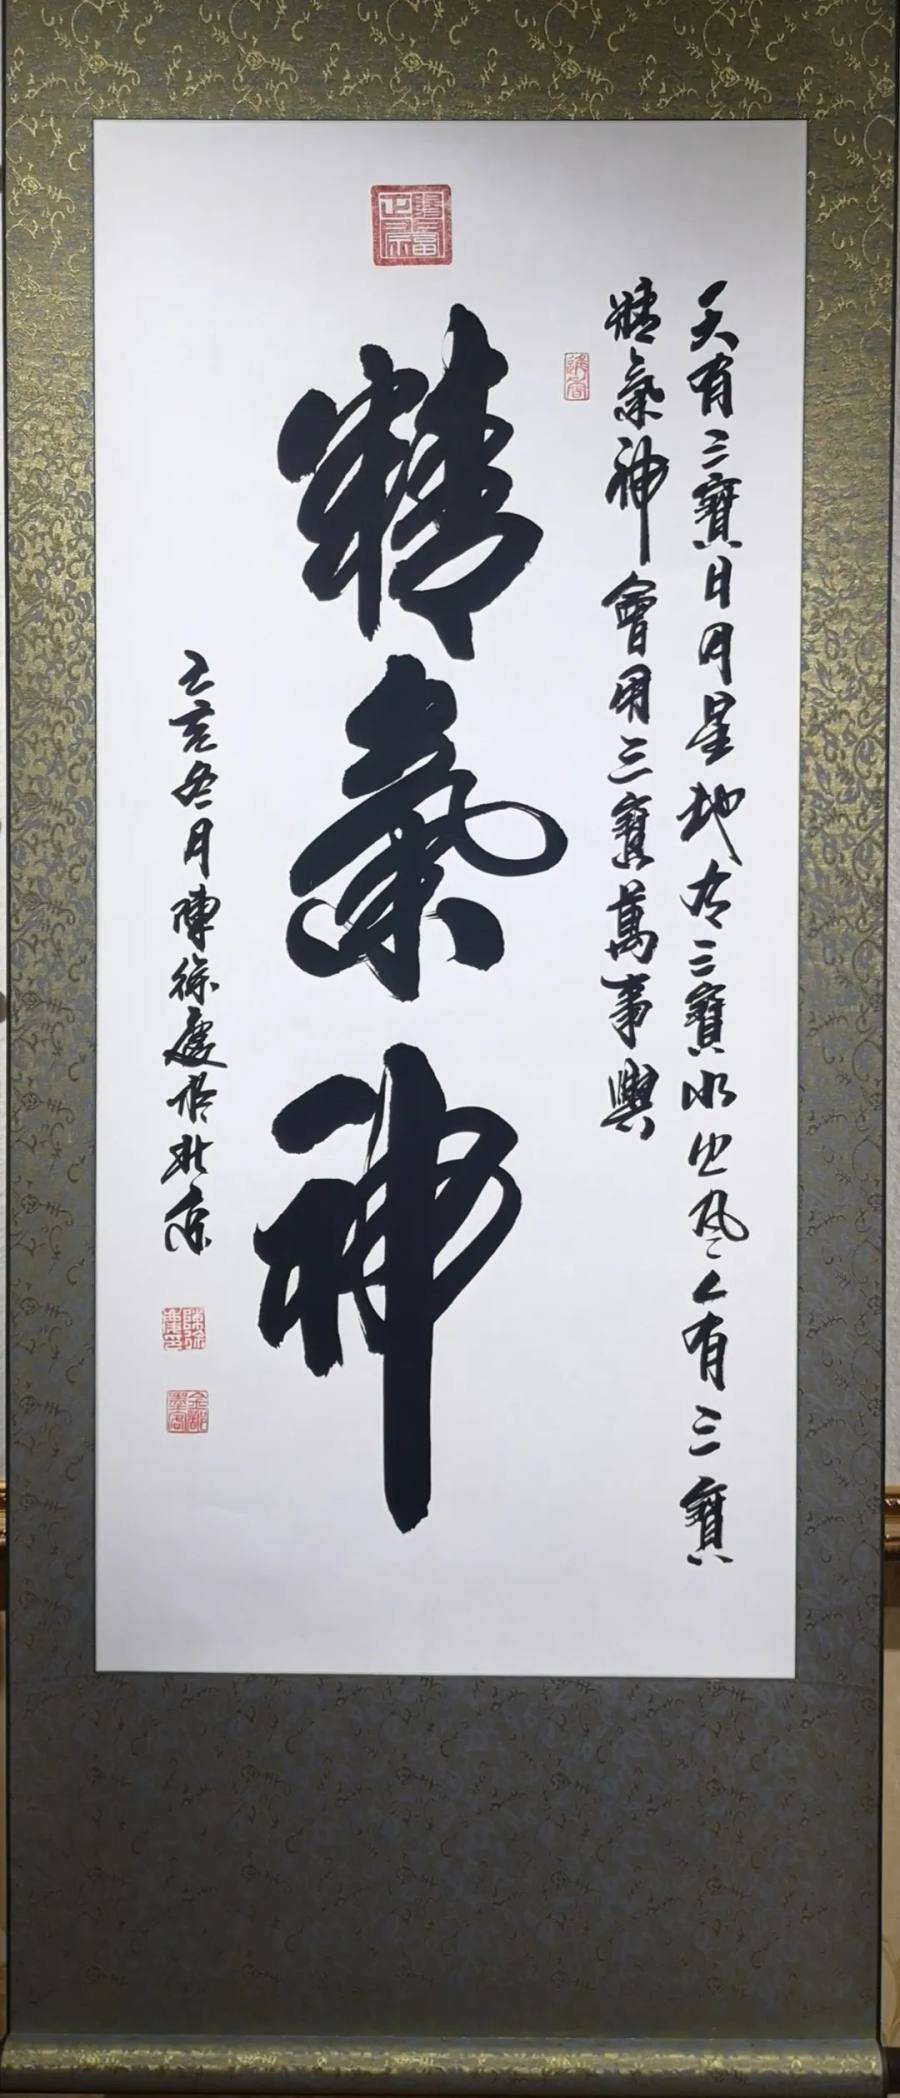 天有三寶日月星地有三寶水火風人有三寶
精氣神會用三寶萬事興
精氣神
己亥冬月陳徐慶作北京